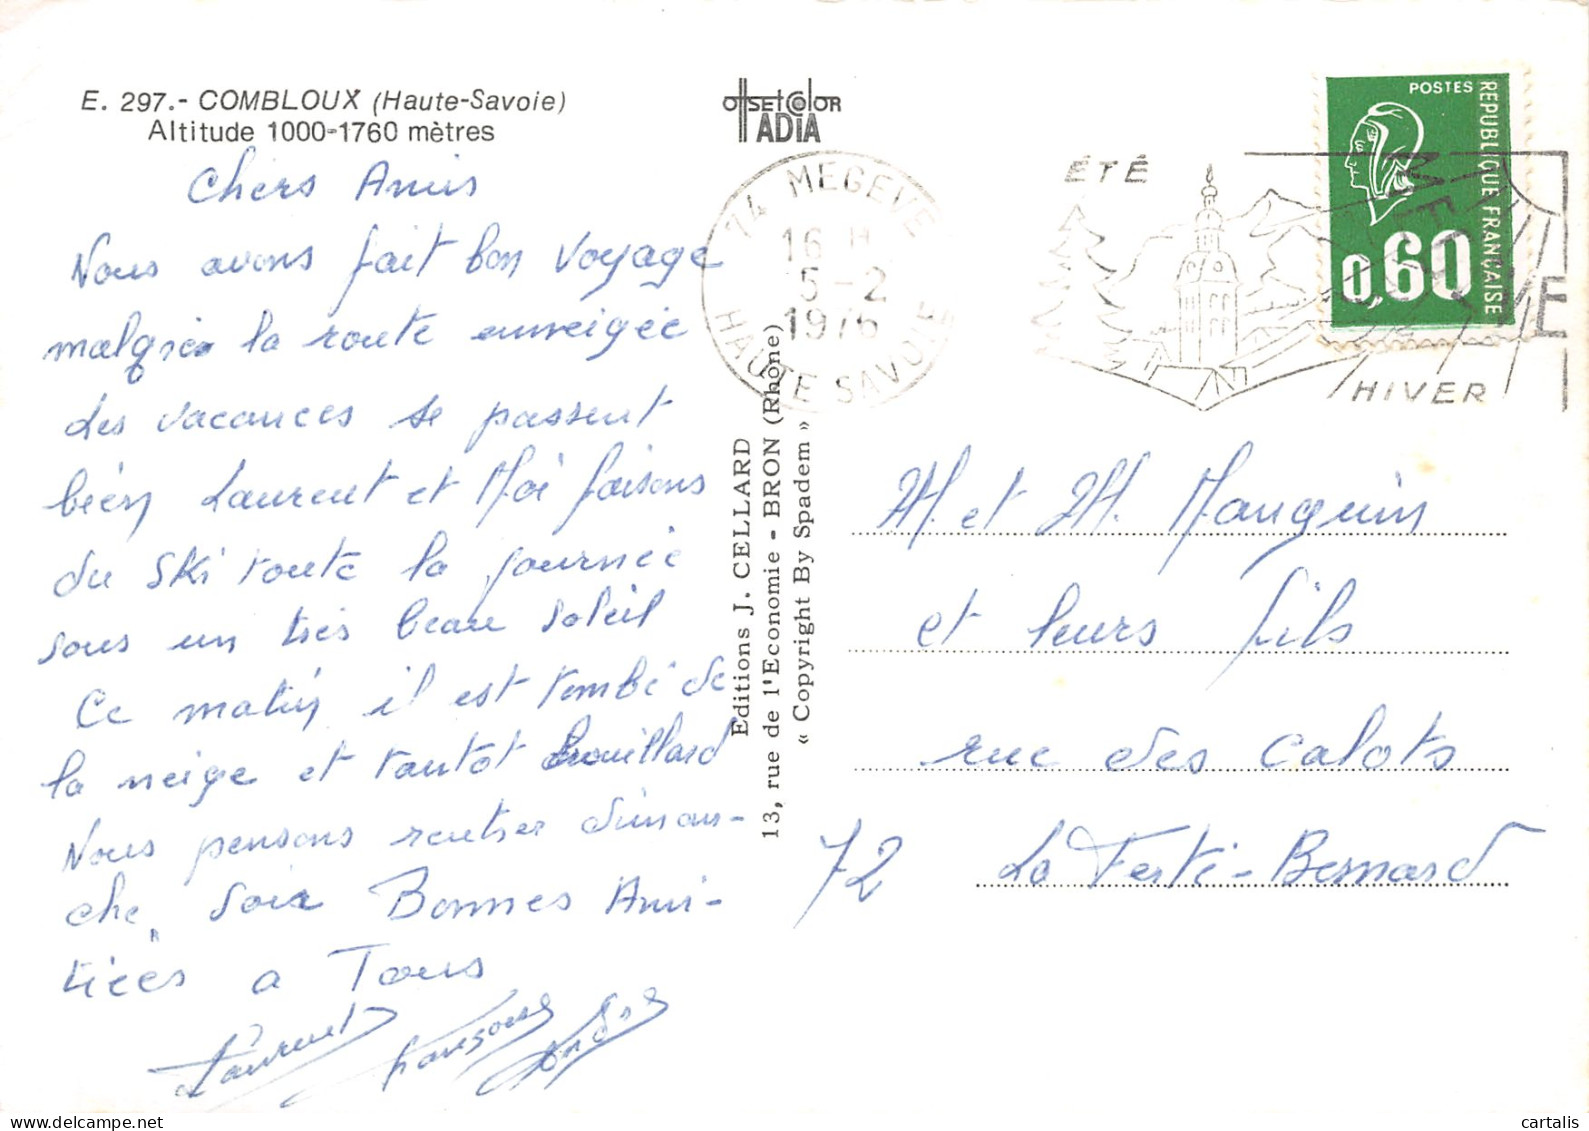 E. 297.- COMBLOUX (Haute-Savoie)
Altitude 1000-1760 mètres
Chers Amis
Nous avons fait bon Voyage
malgré la route enneigée
des vacances se passent
bien Laurent et Moi faisons
du Ski toute la journée
sous un très beau soleil
Ce matin il est tombé de
la neige et tantot brouillard
Nous pensons rentrer diman-
che soir Bonnes Ami-
tiées a Tous
Laurent
offsetcolor
ADIA
Editions J. CELLARD
13, rue de l'Economie - BRON (Rhône)
« Copyright By Spadem »
74 MEGEVE
16 H
5-2
1976
HAUTE SAVOIE
ÉTÉ
MEGEVE
HIVER
POSTES
REPUBLIQUE FRANÇAISE
0,60
M. et M. Mauguin
et leurs fils
rue des Calots
72 La Ferté-Bernard
cartalis
delcampe.net